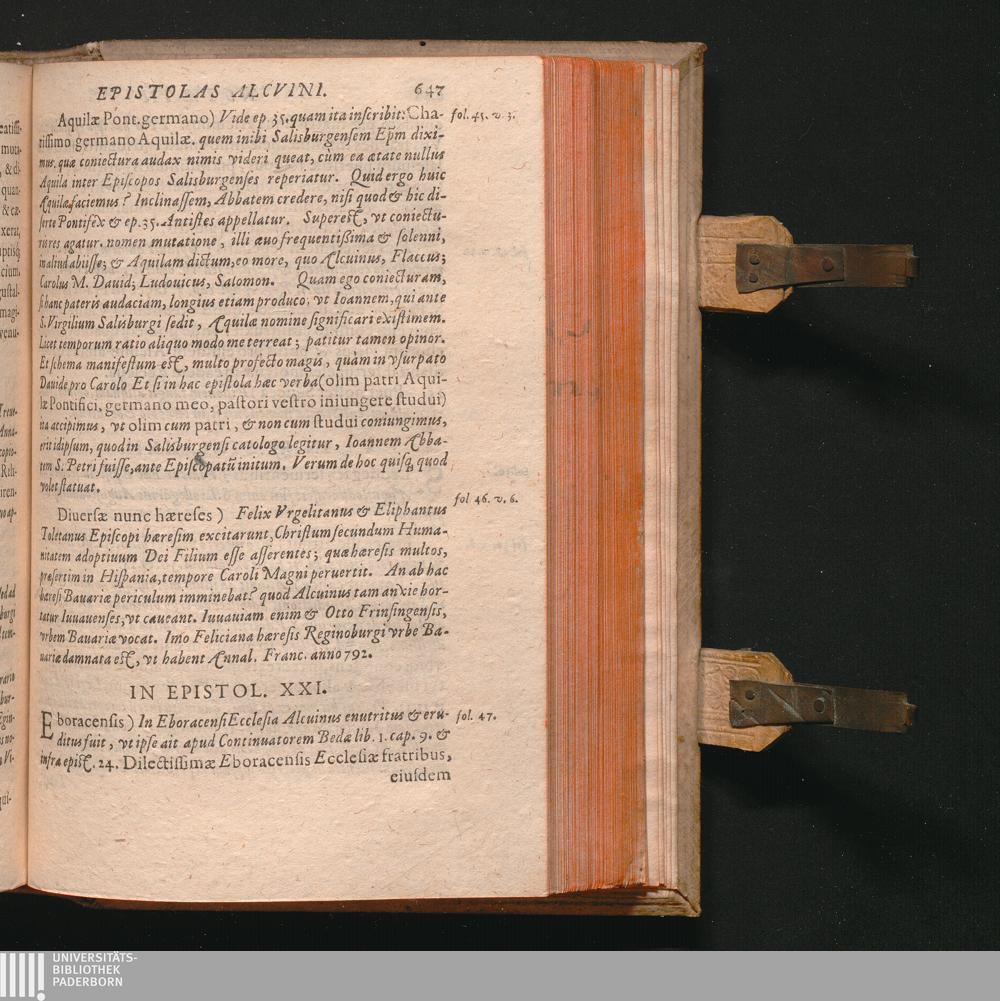 EPISTOLAS ALCVINI. 647
Aquilæ Pont. germano) Vide ep. 35. quam ita inscribit: Cha- fol. 45. v. 3.
rissimo germano Aquilæ. quem inibi Salisburgensem Ep̃m dixi-
mus. quæ coniectura audax nimis videri queat, cùm ea ætate nullus
Aquila inter Episcopos Salisburgenses reperiatur. Quid ergo huic
Aquilæ faciemus? Inclinassem, Abbatem credere, nisi quod & hic di-
serte Pontifex & ep. 35. Antistes appellatur. Superest, vt coniectu-
ris res agatur. nomen mutatione, illi æuo frequentißima & solenni,
in aliud abiisse; & Aquilam dictum, eo more, quo Alcuinus, Flaccus;
Carolus M. Dauid; Ludouicus, Salomon. Quam ego coniecturam,
si hanc pateris audaciam, longius etiam produco, vt Ioannem, qui ante
S. Virgilium Salisburgi sedit, Aquilæ nomine significari existimem.
Licet temporum ratio aliquo modo me terreat; patitur tamen opinor.
Et schema manifestum est, multo profecto magis, quàm in vsurpato
Dauide pro Carolo Et si in hac epistola hæc verba (olim patri Aqui-
læ Pontifici, germano meo, pastori vestro iniungere studui)
ita accipimus, vt olim cum patri, & non cum studui coniungimus,
erit id ipsum, quod in Salisburgensi catologo legitur, Ioannem Abba-
tem S. Petri fuisse, ante Episcopatũ initum. Verum de hoc quisq; quod
volet statuat.
Diuersæ nunc hæreses) Felix Vrgelitanus & Eliphantus fol. 46. v. 6.
Toletanus Episcopi hæresim excitarunt, Christum secundum Huma-
nitatem adoptiuum Dei Filium esse asserentes; quæ hæresis multos,
præsertim in Hispania, tempore Caroli Magni peruertit. An ab hac
hæresi Bauariæ periculum imminebat? quod Alcuinus tam anxie hor-
tatur Iuuauenses, vt caueant. Iuuauiam enim & Otto Frinsingensis,
vrbem Bauariæ vocat. Imo Feliciana hæresis Reginoburgi vrbe Ba-
uariæ damnata est, vt habent Annal. Franc. anno 792.
IN EPISTOL. XXI.
Eboracensis) In Eboracensi Ecclesia Alcuinus enutritus & eru- fol. 47.
ditus fuit, vt ipse ait apud Continuatorem Bedæ lib. 1. cap. 9. &
infra epist. 24. Dilectissimæ Eboracensis Ecclesiæ fratribus,
eiusdem
UNIVERSITÄTS-
BIBLIOTHEK
PADERBORN